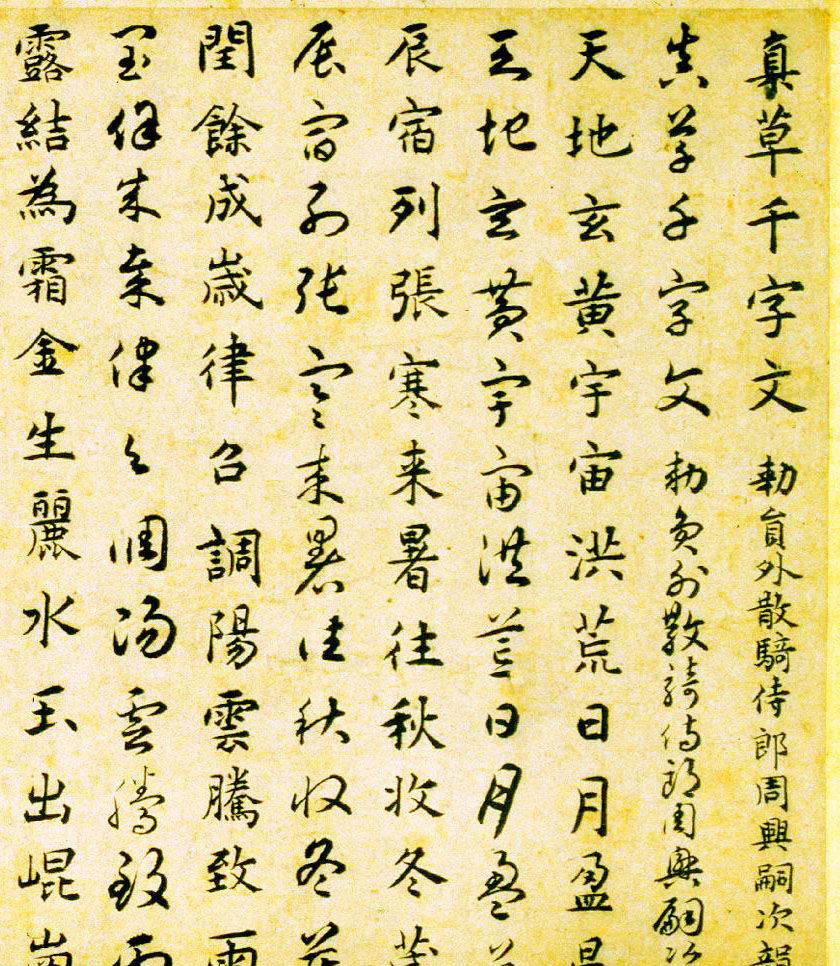 真草千字文 勅員外散騎侍郎周興嗣次韻
真草千字文 勅員外散騎侍郎周興嗣次
天地玄黃宇宙洪荒日月盈昃
天地玄黃宇宙洪荒日月盈
辰宿列張寒来暑往秋收冬藏
辰宿列張寒来暑往秋收冬藏
閏餘成歲律召調陽雲騰致雨
閏餘成歲律召調陽雲騰致雨
露結為霜金生麗水玉出崐崗